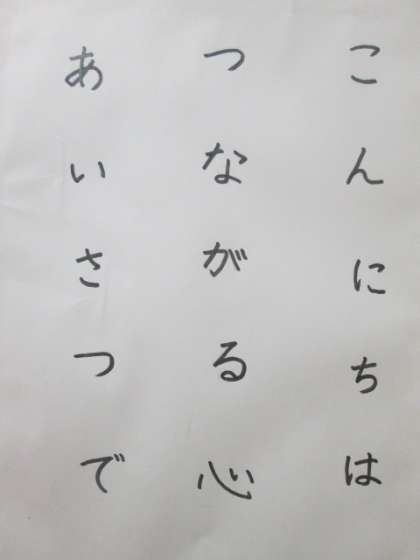 こんにちは
つながる心
あいさつで